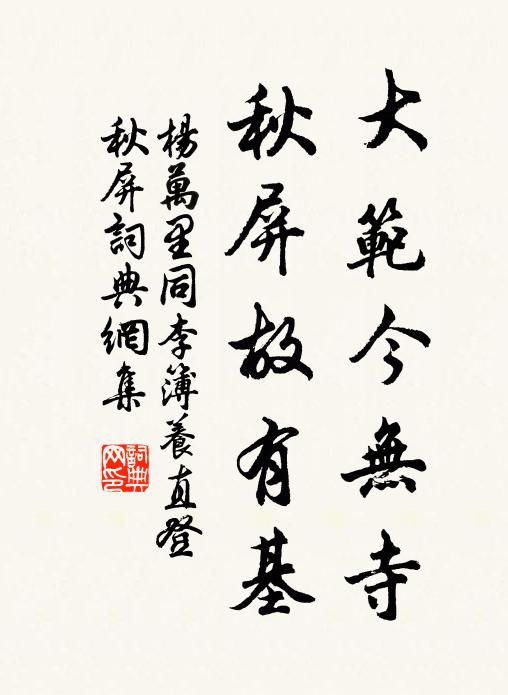 大範今無寺
秋屏故有基
楊萬里同李簿養直登
秋屏詞典網集
詞典网印